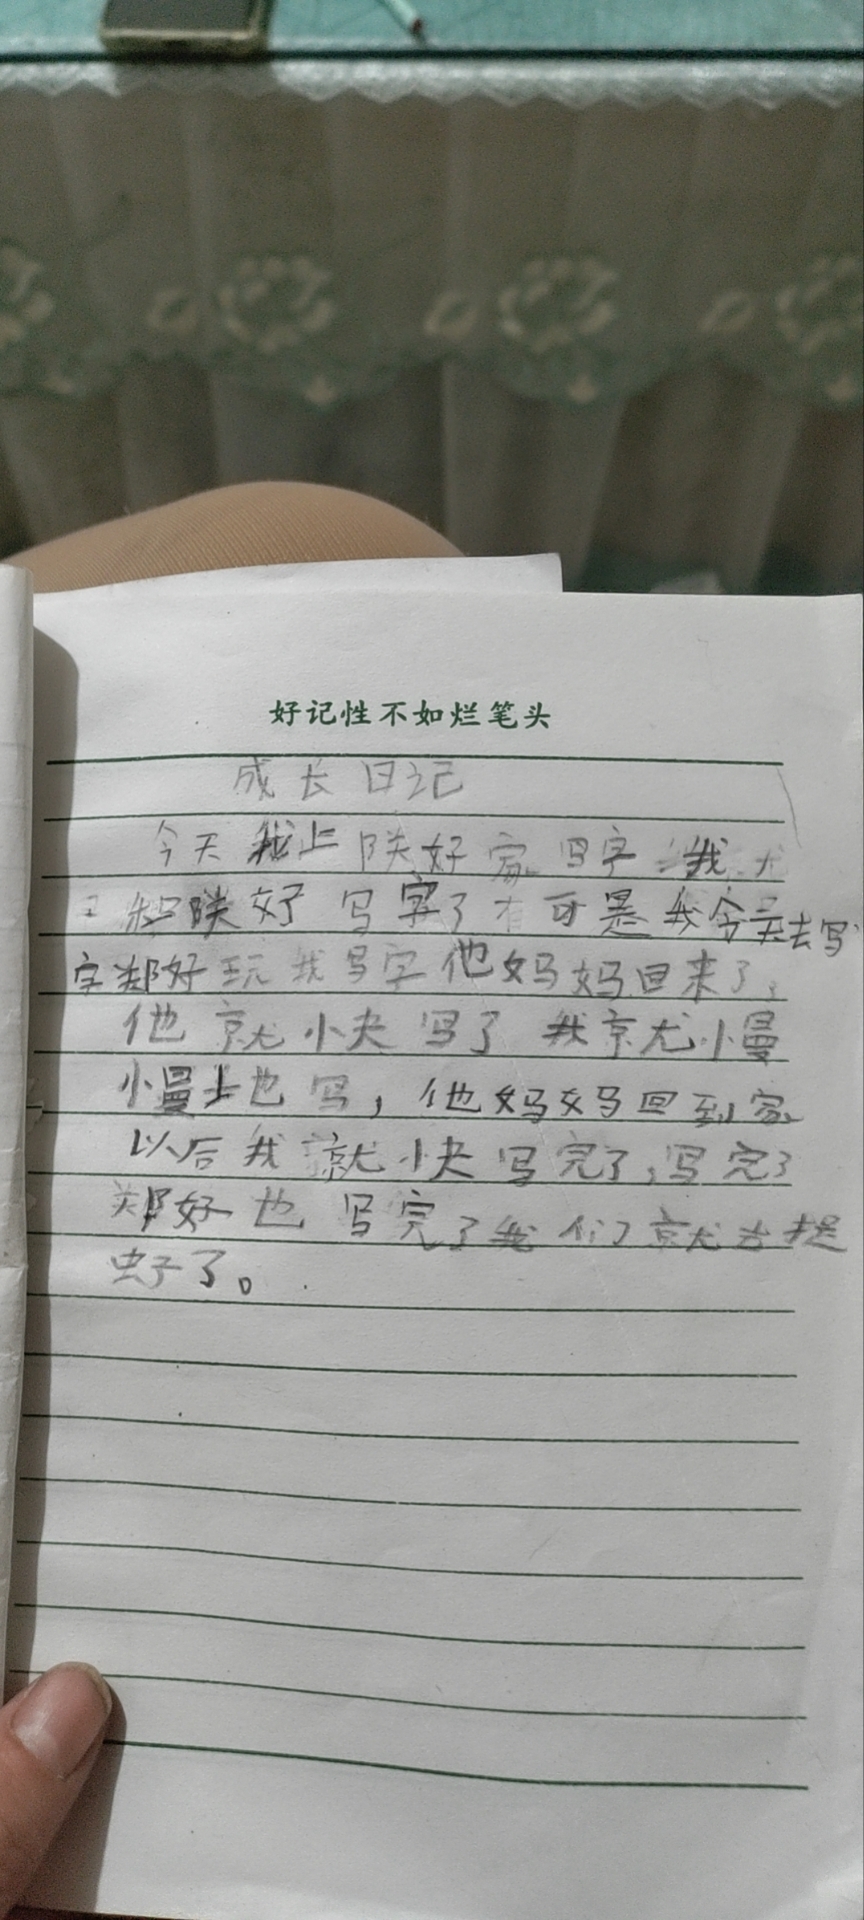 好记性不如烂笔头
成长日记
今天我上郑好家写字我
和郑好写字了可是我今天去写
字郑好玩我写字他妈妈回来了,
他就小夬写了我就小曼
小曼上也写,他妈妈回到家
以后我就小快写完了,写完了
郑好也写完了我们就去捉
虫子了。